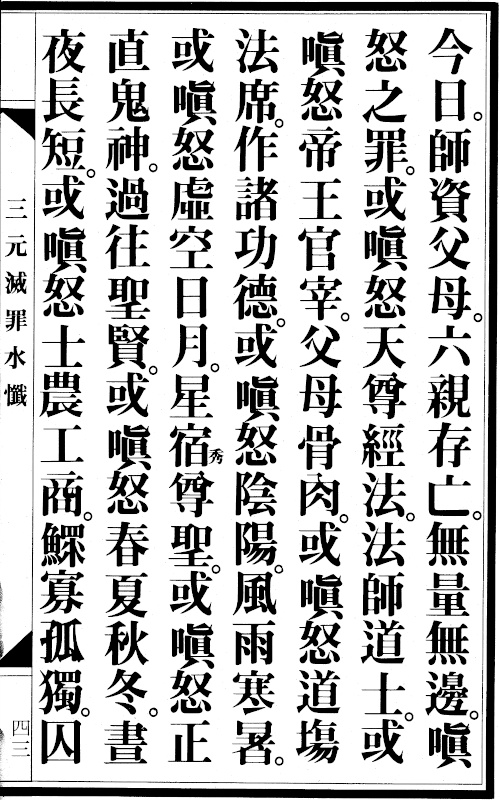 今日。師資父母。六親存亡。無量無邊。嗔
怒之罪。或嗔怒天尊經法。法師道士。或
嗔怒帝王官宰。父母骨肉。或嗔怒道塲
法席。作諸功德。或嗔怒陰陽。風雨寒暑。
或嗔怒虛空日月。星宿秀尊聖。或嗔怒正
直鬼神。過往聖賢。或嗔怒春夏秋冬。晝
夜長短。或嗔怒士農工商。鰥寡孤獨。囚
三元滅罪水懺
四三